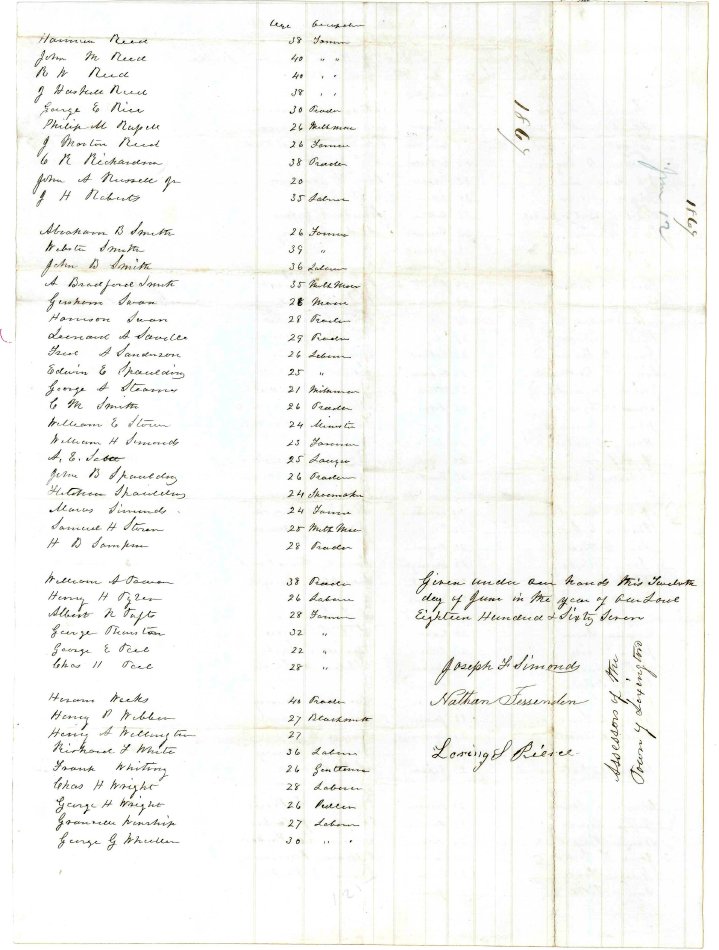 Age Occupation
Hammon Reed 38 Farmer
John M Reed 40 " "
R W Reed 40 " "
J Haskell Reed 38 " "
George E Rice 30 Trader
Philip M Russell 26 Milkman
J Morton Reed 26 Farmer
C R Richardson 38 Trader
John A Russell Jr 20
J H Roberts 35 Labour
Abraham B Smith 26 Farmer
Webster Smith 39 "
John B Smith 36 Labour
A Bradford Smith 35 Milk Man
Gershom Swan 28 Mason
Harrison Swan 28 Trader
Leonard A Saville 29 Trader
Fred A Sanderson 26 Labour
Edwin E Spaulding 25 "
George A Stearns 21 Milkman
C M Smith 26 Trader
William E Stown 24 Minister
William H Simonds 23 Farmer
A. E. Scott 25 Lawyer
John B Spaulding 26 Trader
Fletcher Spaulding 24 Shoemaker
Marcus Simonds 24 Farmer
Samuel H Stown 25 Milk Man
H D Sampson 28 Trader
William A 38 Trader
Henry H Tyler 26 Labour
Albert N Tufts 28 Farmer
George Thurston 32 "
George E Teel 22 "
Chas H Teel 28 "
Hiram Weeks 40 Trader
Henry P Webber 27 Blacksmith
Henry A Wellington 27
Richard F White 36 Labour
Frank Whiting 26 Gentleman
Chas H Wright 28 Labour
George H Wright 26 Pedler
Granville Winship 27 Labour
George G Wheeler 30 " "
1867
1867
June 12
Given under our hands this Twelvth
day of June in the year of our Lord
Eighteen Hundred & Sixty Seven
Joseph F Simonds
Nathan Fessenden
Loring S Pierce
Assessors of the
Town of Lexington